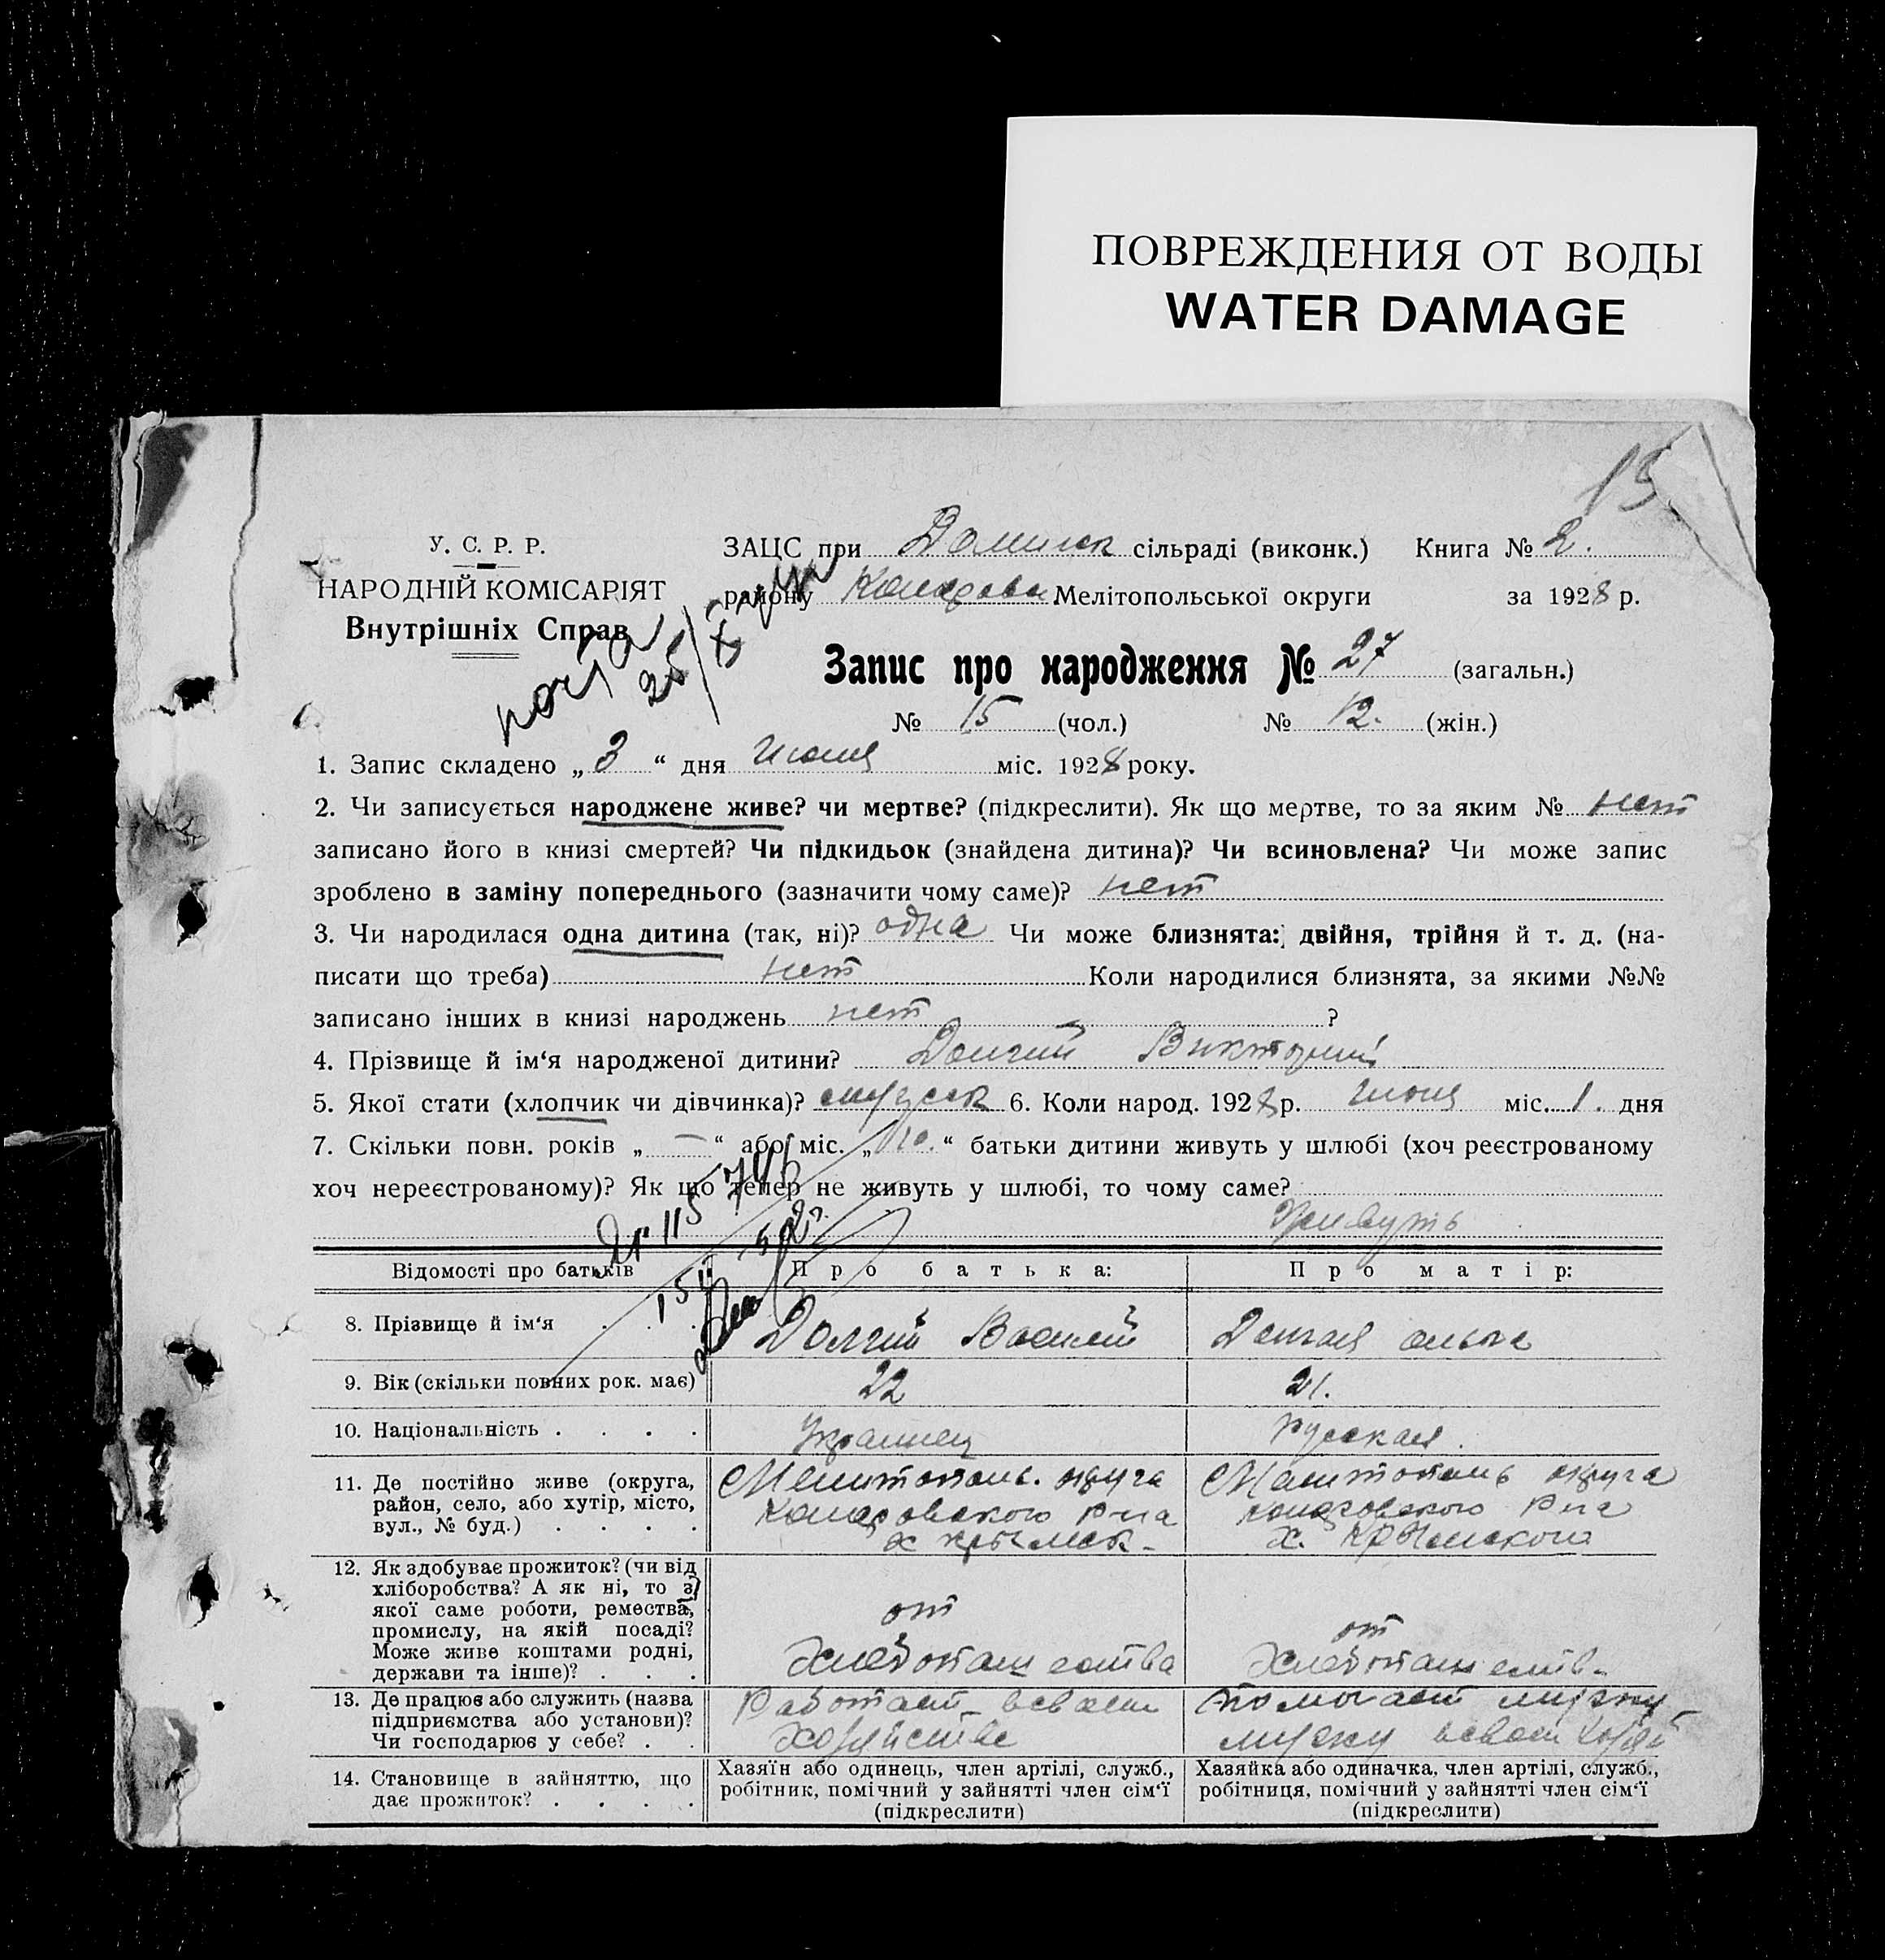 ПОВРЕЖДЕНИЯ ОТ ВОДЫ
WATER DAMAGE
15
У. С. Р. Р.
НАРОДНІЙ КОМІСАРІЯТ
Внутрішніх Справ
ЗАЦС при сільраді (виконк.) Книга № 2.
району Мелітопольської округи за 1928 р.
Запис про народження № 27 (загальн.)
№ 15 (чол.) № 12. (жін.)
1. Запис складено „ 3 “ дня Июня міс. 1928 року.
2. Чи записується народжене живе? чи мертве? (підкреслити). Як що мертве, то за яким № нет
записано його в книзі смертей? Чи підкидьок (знайдена дитина)? Чи всиновлена? Чи може запис
зроблено в заміну попереднього (зазначити чому саме)? нет
3. Чи народилася одна дитина (так, ні)? одна Чи може близнята: двійня, трійня й т. д. (на-
писати що треба) нет Коли народилися близнята, за якими №№
записано інших в книзі народжень нет ?
4. Прізвище й ім‘я народженої дитини? Долгий
5. Якої стати (хлопчик чи дівчинка)? мужск 6. Коли народ. 1928 р. Июня міс. 1. дня
7. Скільки повн. років „ — “ або міс. „ 10. “ батьки дитини живуть у шлюбі (хоч реєстрованому
хоч нереєстрованому)? Як що тепер не живуть у шлюбі, то чому саме?
Живуть
Відомості про батьків Про батька: Про матір:
8. Прізвище й ім‘я . . . Долгий Василий Долгая ольга
9. Вік (скільки повних рок. має) 22 21.
10. Національність . . . . Украинец русская.
11. Де постійно живе (округа, Мелитополь. округа Мелитополь округа
район, село, або хутір, місто, р-на р-на
вул., № буд.) . . . . х крымск- х. Крымского
12. Як здобуває прожиток? (чи від
хліборобства? А як ні, то з
якої саме роботи, ремества, от
промислу, на якій посаді? от
Може живе коштами родні, Хлебопашества Хлебопашеств-
держави та інше)? . . .
13. Де працює або служить (назва Работает всвоем помогает мужу
підприємства або установи)? хозяйстве мужу всвоем хозяй
Чи господарює у себе? . .
14. Становище в зайняттю, що Хазяїн або одинець, член артілі, служб., Хазяйка або одиначка, член артілі, служб.,
дає прожиток? . . . . робітник, помічний у зайнятті член сім‘ї робітниця, помічний у зайнятті член сім‘ї
(підкреслити) (підкреслити)